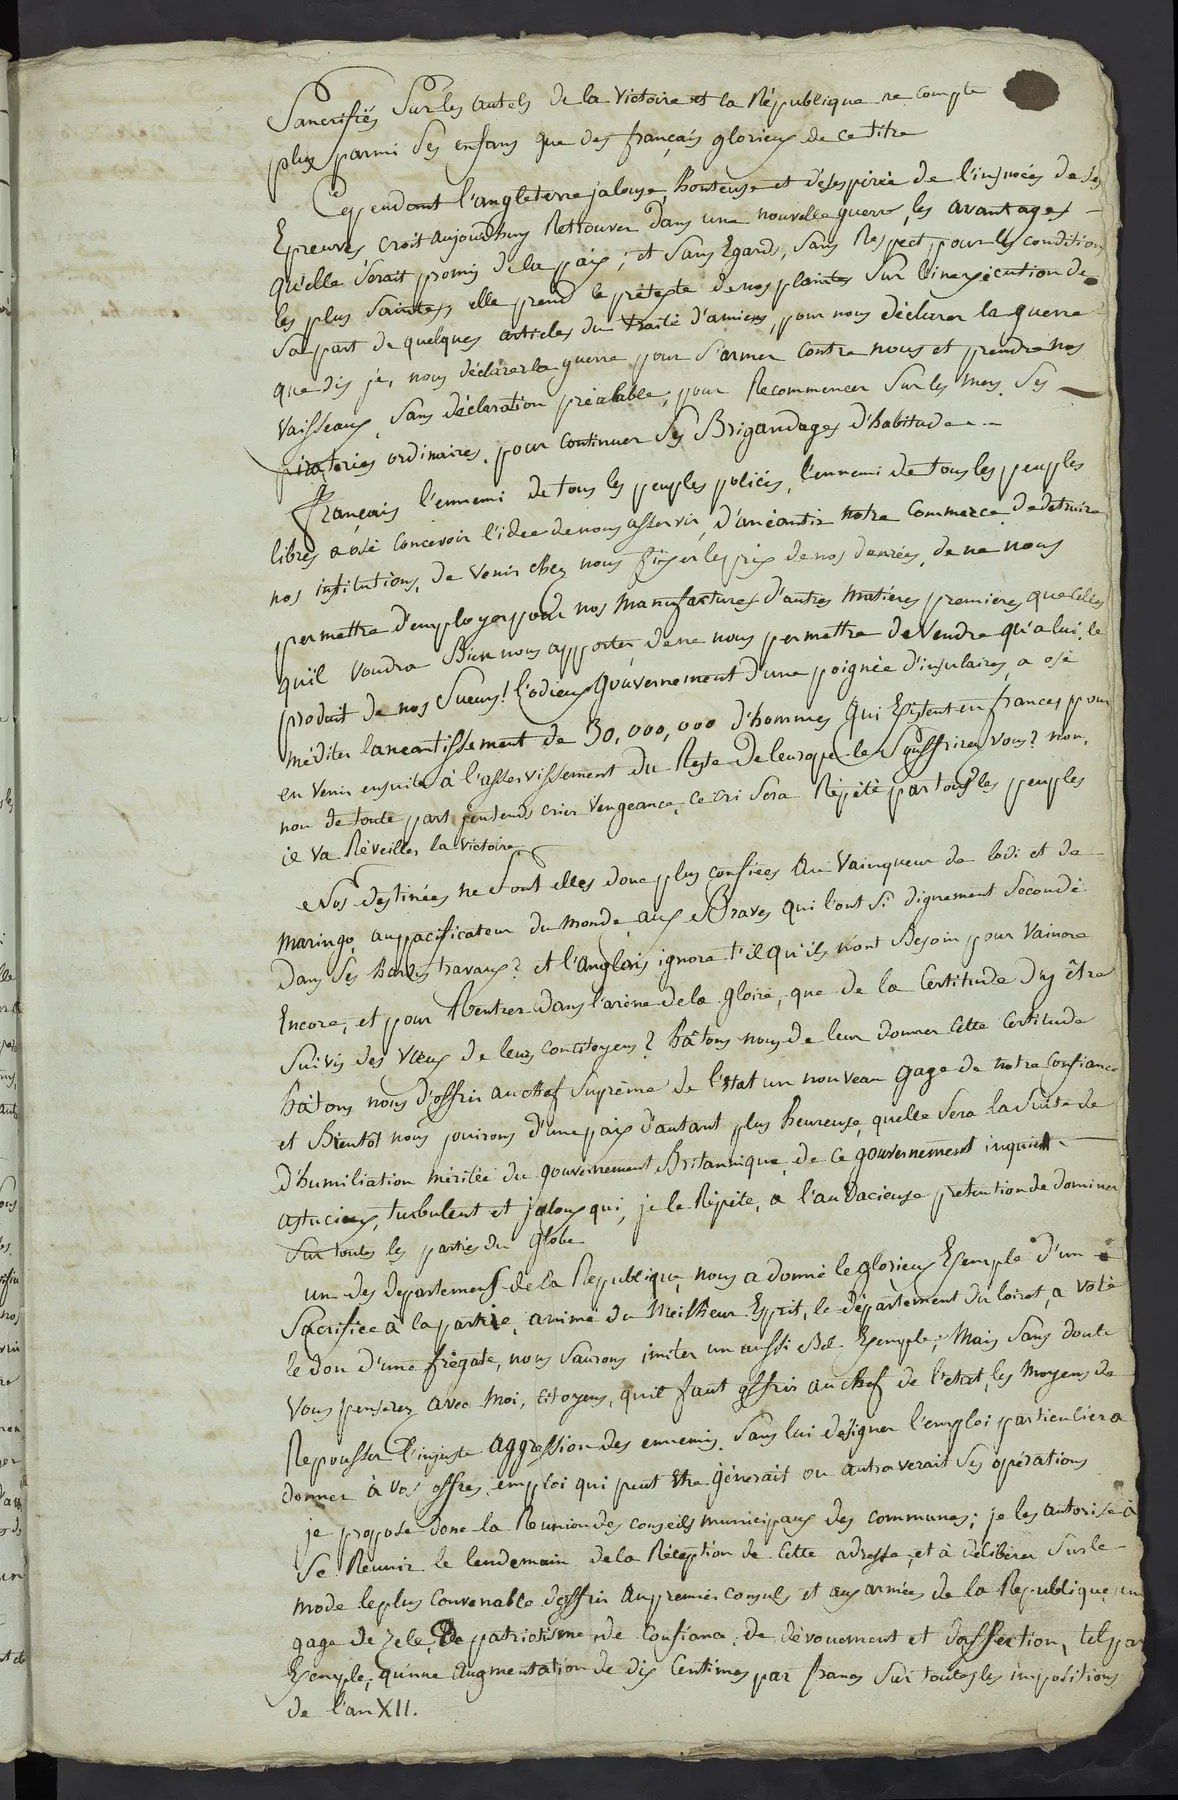 Sancrifiés Sur les autels de la victoire et la République ne compte
plus parmi Ses enfans que des français glorieux de ce titre
Cependant l'angleterre jalouse, honteuse et désespérée de l'insuccès de Ses
Epreuves croit aujourdhuy Retrouver Dans une nouvelle guerre, les avantages
quelle S'erait promis de la paix; et Sans Egards, Sans Respect, pour les condition
les plus Saintes, elle prend le prétexte de nos plaintes Sur l'inexécution de
Sa part de quelques articles du traité d'amiens, pour nous déclarer la guerre
que dis je, nous déclarer la guerre pour S'armer contre nous et prendre nos
Vaisseaux, Sans déclaration préalable, pour Recommencer Sur les mers Ses
pirateries ordinaires, pour continuer Ses Brigandages d'habitude
français l'ennemi de tous les peuples policés, l'ennemi de tous les peuples
libres a osé concevoir l'idee de nous asservir, d'anéantir notre commerce, de detruire
nos institutions, de venir chez nous fixer les prix de nos denrées, de ne nous
permettre d'employer pour nos manufactures d'autres matières premieres que celles
qu'il voudra Bien nous apporter, de ne nous permettre de vendre qu'a lui, le
produit de nos Sueurs! l'odieux gouvernement d'une poignée d'insulaires, a osé
méditer lanéantissement de 30,000,000 d'hommes qui Existent en frances pour
en venir ensuite à l'asservissement du Reste de leurope le Souffrirez vous? non,
non de toute part jentends crier vengeance, ce cri Sera Répété par tous les peuples
il va Réveiller la victoire
Nos destinées ne Sont elles donc plus confiées au vainqueur de lodi et de
maringo, au pacificateur du monde, aux Braves qui l'ont Si dignement Secondé
Dans Ses hardis travaux? et l'anglais ignore t'il qu'ils n'ont Besoin pour vaincre
Encore, et pour Rentrer dans l'arène de la gloire, que de la Certitude d'y être
Suivis des vœux de leurs concitoyens? hâtons nous de leur donner Cette Certitude
hâtons nous d'offrir au chef Suprême de l'Etat un nouveau gage de notre confiance
et Bientôt nous jouirons d'une paix d'autant plus heureuse, quelle Sera la Suite de
d'humiliation méritée du gouvernement Britannique, de ce gouvernement inquiet
astucieux, turbulent et jaloux qui, je le Répète, a l'audacieuse prétention de dominer
Sur toutes les parties du globe
un des departemens de la Republique, nous a donné le glorieux Exemple d'un
Sacrifice à la partrie, animé du Meilheur Esprit, le département du loiret, a voté
le don d'une frégate, nous Saurons imiter un aussi Bel Exemple; Mais Sans doute
vous penserez avec Moi, citoyens, qu'il faut offrir au chef de l'etat, les moyens de
Repousser l'injuste aggression des ennemis, Sans lui désigner l'emploi particulier a
donner à vos offres, emploi qui peut Etre gênerait ou entraverait Ses opérations
je propose donc la Reunion des conseils municipaux des communes; je les autorise à
Se Reunir le lendemain de la Réception de Cette adresse, et à délibérer Sur le
mode le plus Convenable d'offrir au premier consul, et aux armées de la Republique, un
gage de Zele, De patriotisme, de Confiance, de dévouement et d'affection, tel par
Exemple, qu'une augmentation de dix Centimes par franc Sur toutes les impositions
de l'an XII.